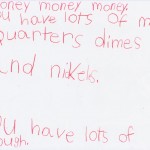 money money money.
you have lots of m
quarters dimes
and nickels.
you have lots of
ough.